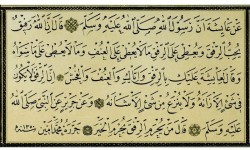 عَنْ عَائِشَةَ اَنَّ رَسُولَ اللهِ صَلَّى اللهُ عَلَيْهِ وَسَلَّمَ قَالَ اِنَّ اللهَ رَفِيقٌ
يُحِبُّ الرِّفْقَ وَيُعْطِى عَلَى الرِّفْقِ مَا لَا يُعْطِى عَلَى الْعُنْفِ وَمَا لَا يُعْطِى عَلَى مَا سِوَاهُ
وَقَالَ لِعَائِشَةَ عَلَيْكِ بِالرِّفْقِ وَاِيَّاكِ وَالْعُنْفَ وَالْفُحْشَ اِنَّ الرِّفْقَ لَا يَكُونُ
فِى شَىْءٍ اِلَّا زَانَهُ وَلَا يُنْزَعُ مِنْ شَىْءٍ اِلَّا شَانَهُ وَعَنْ جَرِيرٍ عَنِ النَّبِىِّ صَلَّى اللهُ
عَلَيْهِ وَسَلَّمَ قَالَ مَنْ يُحْرَمِ الرِّفْقَ يُحْرَمِ الْخَيْرَ حرره محمد امين